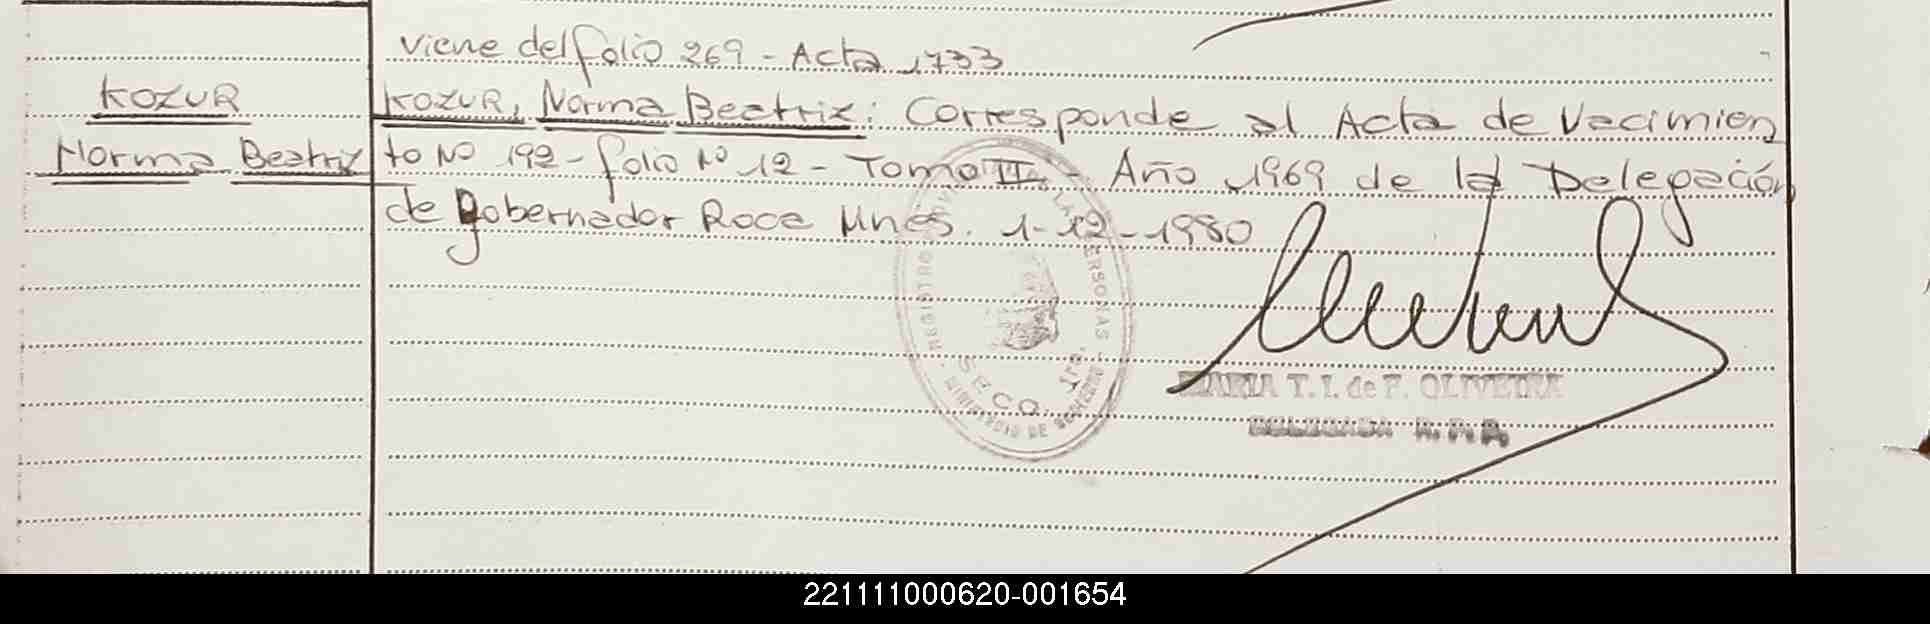 viene del folio 269 - Acta 1733
KOZUR
Norma Beatriz
KOZUR, Norma Beatriz: Corresponde al Acta de Nacimien
to Nº 192 - folio Nº 12 - Tomo II - Año 1969 de la Delegación
de Gobernador Roca Mnes. 1-12-1980
REGISTRO PERSONAS
MINISTERIO DE GOBIERNO
SECC.
MARIA T. I. de F. OLIVEIRA
DELEGADA R. P. P.
221111000620-001654